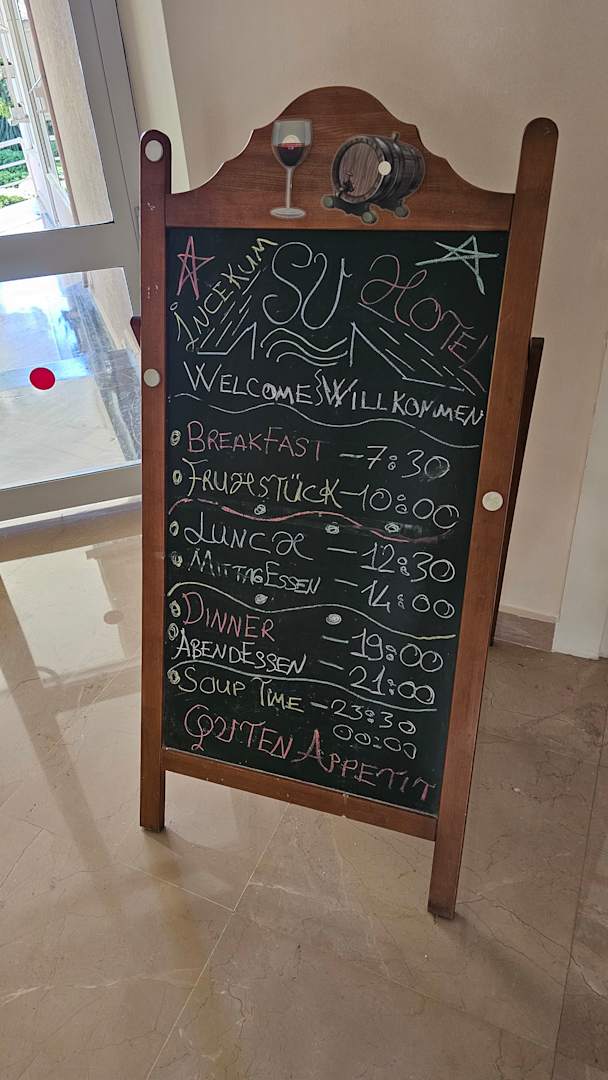 İNCEKUM SU HOTEL
WELCOME WILLKOMMEN
BREAKFAST - 7:30
FRUHSTÜCK - 10:00
LUNCH - 12:30
MITTAGESSEN - 14:00
DINNER - 19:00
ABENDESSEN - 21:00
SOUP TIME - 23:30
00:00
GUTEN APPETIT